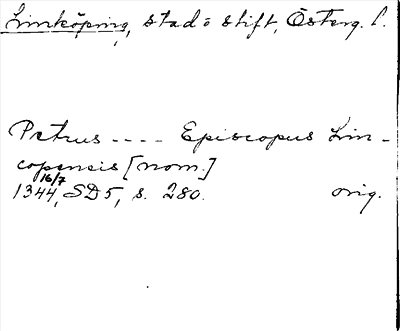 Linköping, stad o stift, Österg. l.
Petrus ---- Episcopus Lin-
copensis [nom.]
16/7
1344, SD5, s. 280. orig.